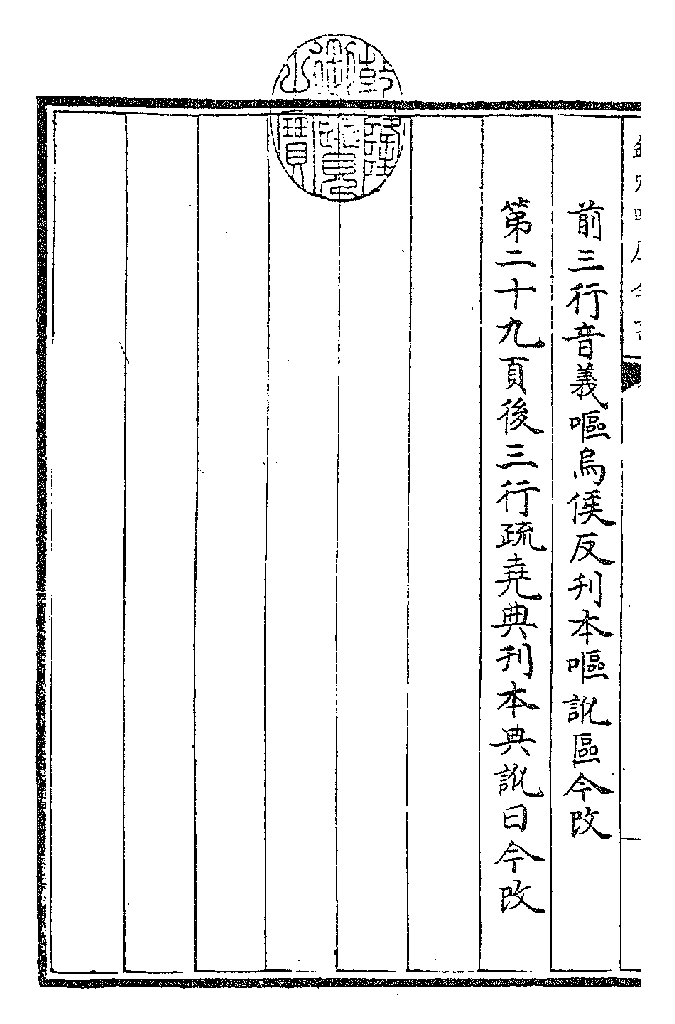 前三行音義嘔烏侯反刊本嘔訛區今改
第二十九頁後三行疏堯典刊本典訛曰今改
乾隆御覽之寶